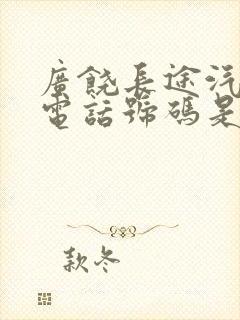 廣饒長途汽
電話號碼是
款冬